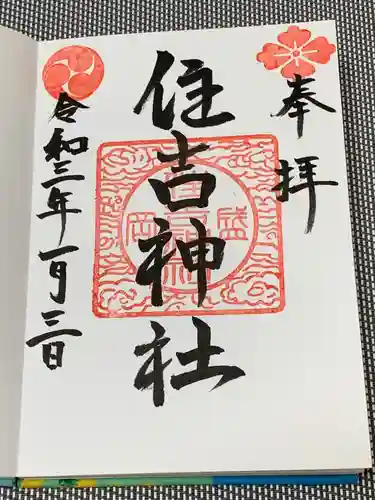 奉拝
住吉神社
盛岡
令和三年一月三日